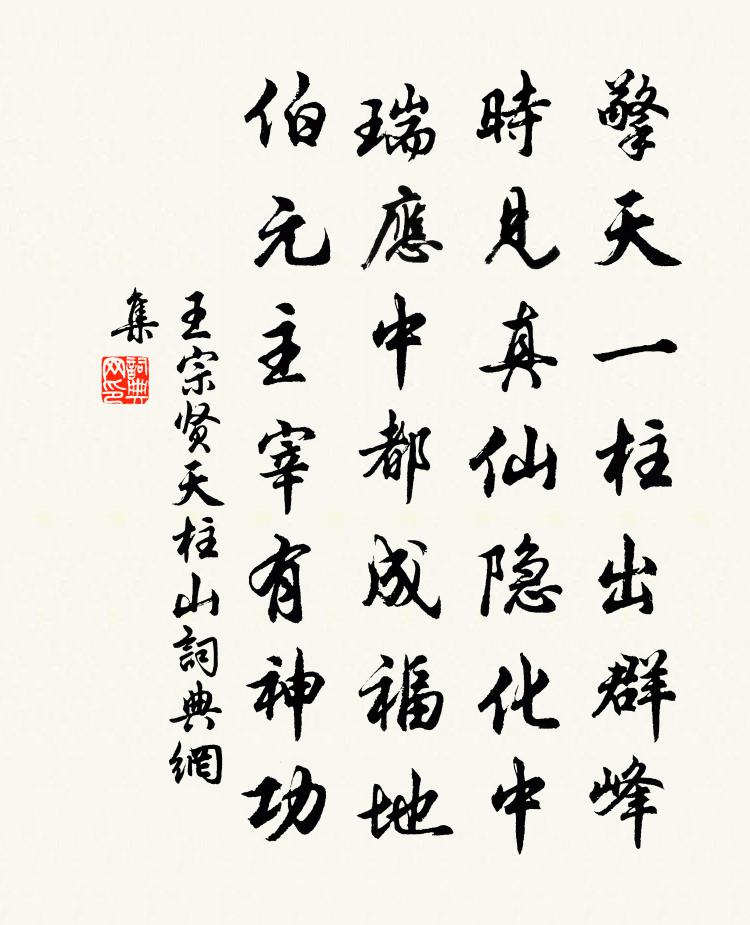 擎天一柱出群峰
時見真仙隐化中
瑞應中都成福地
伯元主宰有神功
王宗贤天柱山詞典網
集
詞典
网印